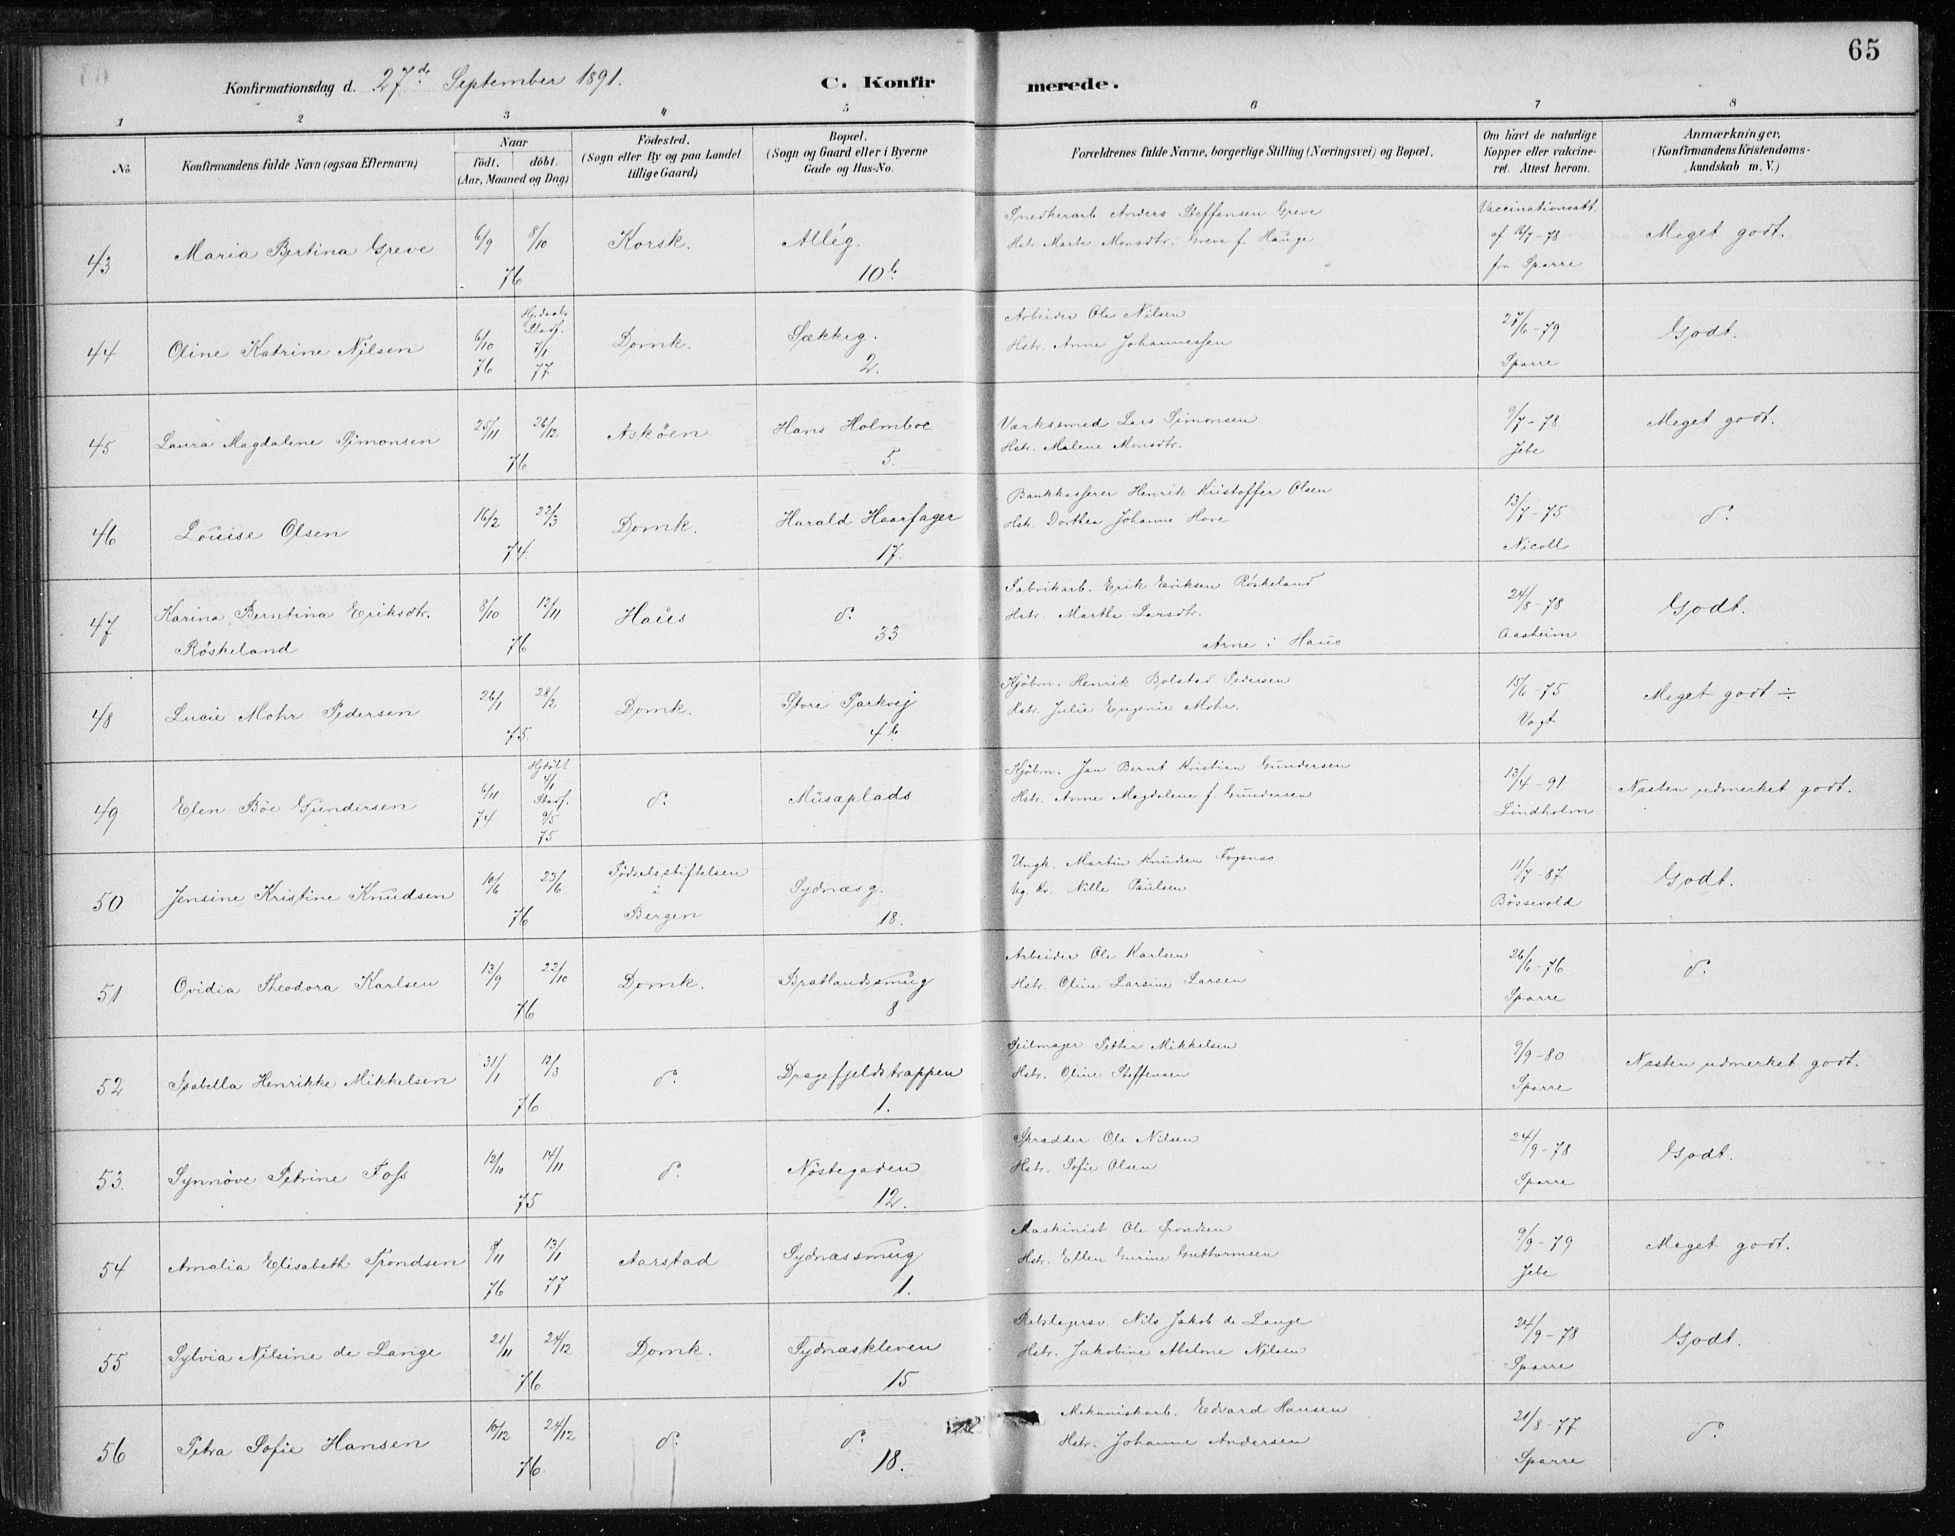 65
Konfirmationsdag d. 27de September 1891.
C. Konfirmerede.
1 2 3 4 5 6 7 8
No.
Konfirmandens fulde Navn (ogsaa Efternavn)
Naar
födt. döbt.
(Aar, Maaned og Dag)
Födested.
(Sogn eller By og paa Landet
tillige Gaard)
Bopæl.
(Sogn og Gaard eller i Byerne
Gade og Hus-No.
Forældrenes fulde Navne, borgerlige Stilling (Næringsvei) og Bopæl.
Om havt de naturlige
Kopper eller vakcine-
ret. Attest herom.
Anmærkninger.
(Konfirmandens Kristendoms-
kundskab m. V.)
43
Maria Bertina Greve
6/9 8/10
76
Korsk.
Allég.
10b
Snedkerarb Anders Steffensen Greve
Hstr Marte Monsdtr. Greve f. Hauge
Vaccinationsatt.
af 16/7-78
fra Sparre
Meget godt.
44
Oline Katrine Nilsen
6/10
76
Hjdøbt
Stadf.
7/1
77
Domk.
Sækkeg.
2.
Arbeider Ole Nilsen
Hstr. Anne Johannessen
27/6-79
Sparre
Godt.
45
Laura Magdalene Simonsen
25/11 26/12
76
Askøen
Hans Holmboe
5.
Værkssmed Lars Simonsen
Hstr. Malene Monsdtr.
9/7-78
Jebe
Meget godt.
46
Louise Olsen
16/2 22/3
74.
Domk.
Harald Haarfager
17.
Bankkasserer Henrik Kristoffer Olsen
Hstr. Dorthea Johanne Hove
13/7-75
Nicoll
do
47
Karina Berntina Eriksdtr.
Röskeland
8/10 12/11
76
Haus
do
33
Fabrikarb. Erik Eriksen Röskeland
Hstr. Martha Larsdtr.
Arne i Haus
24/8-78
Aasheim
Godt.
48
Lucie Mohr Pedersen
26/1 28/2
75.
Domk.
Store Parkvej
4b.
Kjöbm. Henrik Bolstad Pedersen
Hstr. Julie Eugenie Mohr.
15/6-75
Vogt
Meget godt ÷
49
Elen Böe Gundersen
6/11
74
Hjdöbt
4/1
Stadf.
9/5
75
do
Musæplads
Kjöbm. Jan Bernt Kristian Gundersen
Hstr. Anne Magdalene f. Gundersen
13/4-91
Lindholm
Næsten udmerket godt.
50
Jensine Kristine Knudsen
10/6 23/6
76
Födselsstiftelsen
i
Bergen
Sydnæsg.
18.
Ungk. Martin Knudsen Fosnæs
Ug. Kv. Nille Paulsen
11/7-87
Bössevold
Godt.
51
Ovidia Theodora Karlsen
13/9 22/10
76
Domk.
Bratlandssmug
8
Arbeider Ole Karlsen
Hstr. Oline Larsine Larsen
26/6-76
Sparre
do
52
Isabella Henrikke Mikkelsen
31/1 12/3
76
do
Dragefjeldstrappen
1.
Seilmager Petter Mikkelsen
Hstr. Oline Steffensen
9/9-80
Sparre
Næsten udmerket godt.
53.
Synnöve Petrine Foss
12/10 14/11
75
do
Nöstegaden
12.
Spradder Ole Nilsen
Hstr. Sofie Olsen
24/9-78
Sparre
Godt.
54
Amalia Elisabeth Trondsen
9/11 13/1
76 77
Aarstad
Sydnæssmug
1.
Maskinist Ole Trondsen
Hstr. Ellen Gurine Guttormsen
9/9-79
Jebe
Meget godt.
55
Sylvia Nilsine de Lange
21/11 24/12
76
Domk.
Sydnæskleven
15
Rebslagersv. Nils Jakob de Lange
Hstr. Jakobine Abelone Nilsen
24/9-78
Sparre
Godt.
56
Petra Sofie Hansen
10/12 24/12
76
do
do
18.
Mekaniskarb. Edvard Hansen
Hstr. Johanne Andersen
21/8-77
Sparre
do